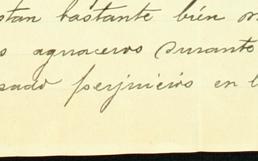 stan bastante bién
s aguaceros durante
sado perjuicios en l